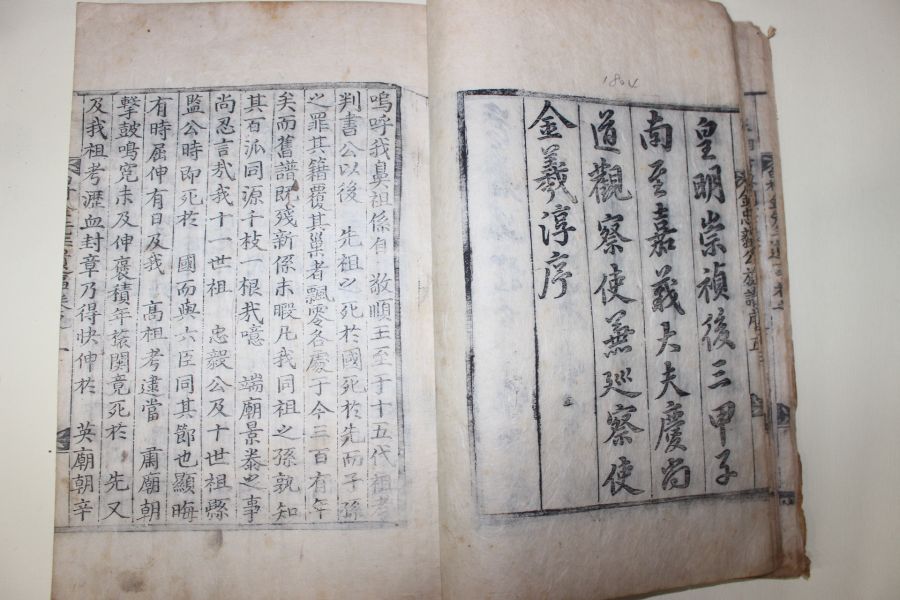 1804
皇明崇禎後三甲子
南至嘉義大夫慶尙
道觀察使兼巡察使
金羲淳序
嗚呼我鼻祖係自 敬順王至二十五代祖考
判書公以後 先祖之死於國死於先而子孫
之罪其籍覆其巢者飄零各處于今三百有年
矣而舊譜旣殘新係未暇凡我同祖之孫孰知
其百派同源千枝一根哉噫 端廟景泰之事
尚忍言哉我十一世祖 忠毅公及十世祖縣
監公時即死於 國而與六臣同其節也顯晦
有時屈伸有日及我 高祖考逮當 肅廟朝
擊鼓鳴寃未及伸褒積年 竟死於 先又
及我祖考瀝血封章乃得快伸於 英廟朝辛